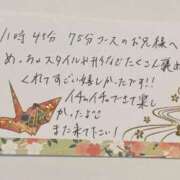 11時45分 75分コースのお兄様へ
めっちゃスタイルや汗などたくさん褒め
くれてすごい嬉しかったです!!
イチャイチャできて楽し
かったよ♡
また来て下さい!